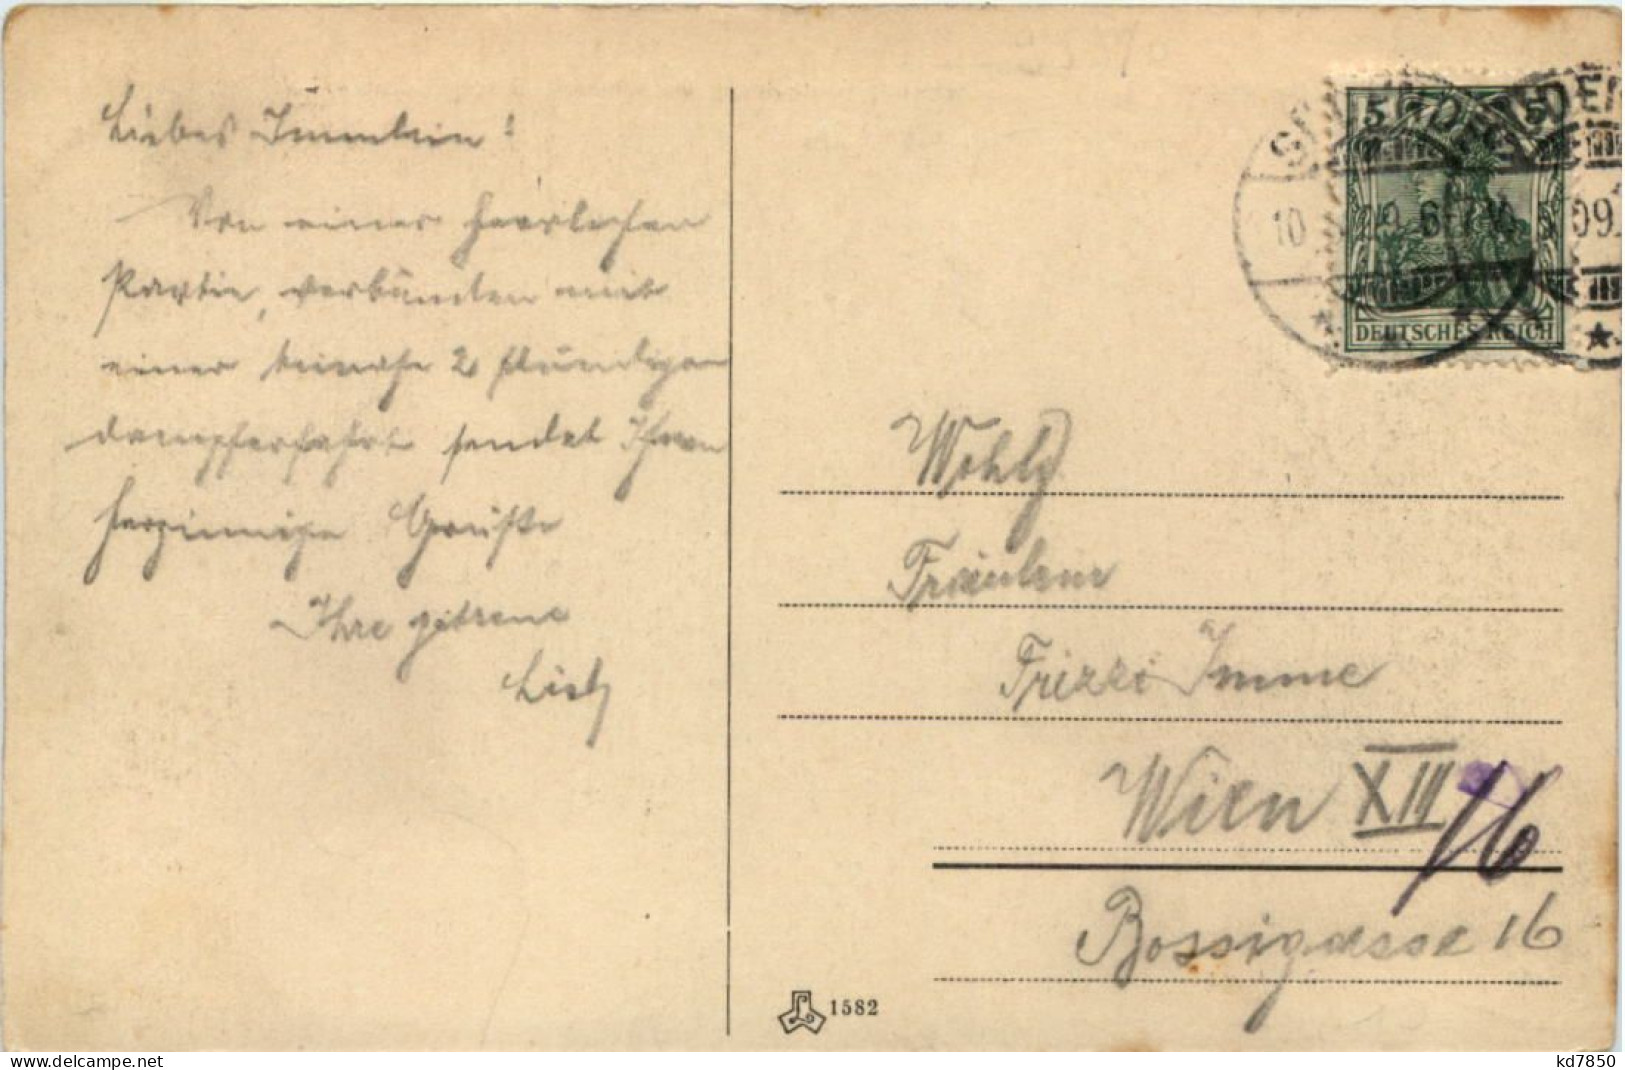 Liebes Immelein!
Von einer herrlichen
Partie, verbunden mit
einer beinahe 2 stündigen
Dampferfahrt sendet Ihnen
herzinnige Grüße
Ihre getreue
Wohlg
Fräulein
Frizzi Imme
Wien XIII/6
Bossigasse 16
5 5
DEUTSCHES REICH
1582
www.delcampe.net
kd7850